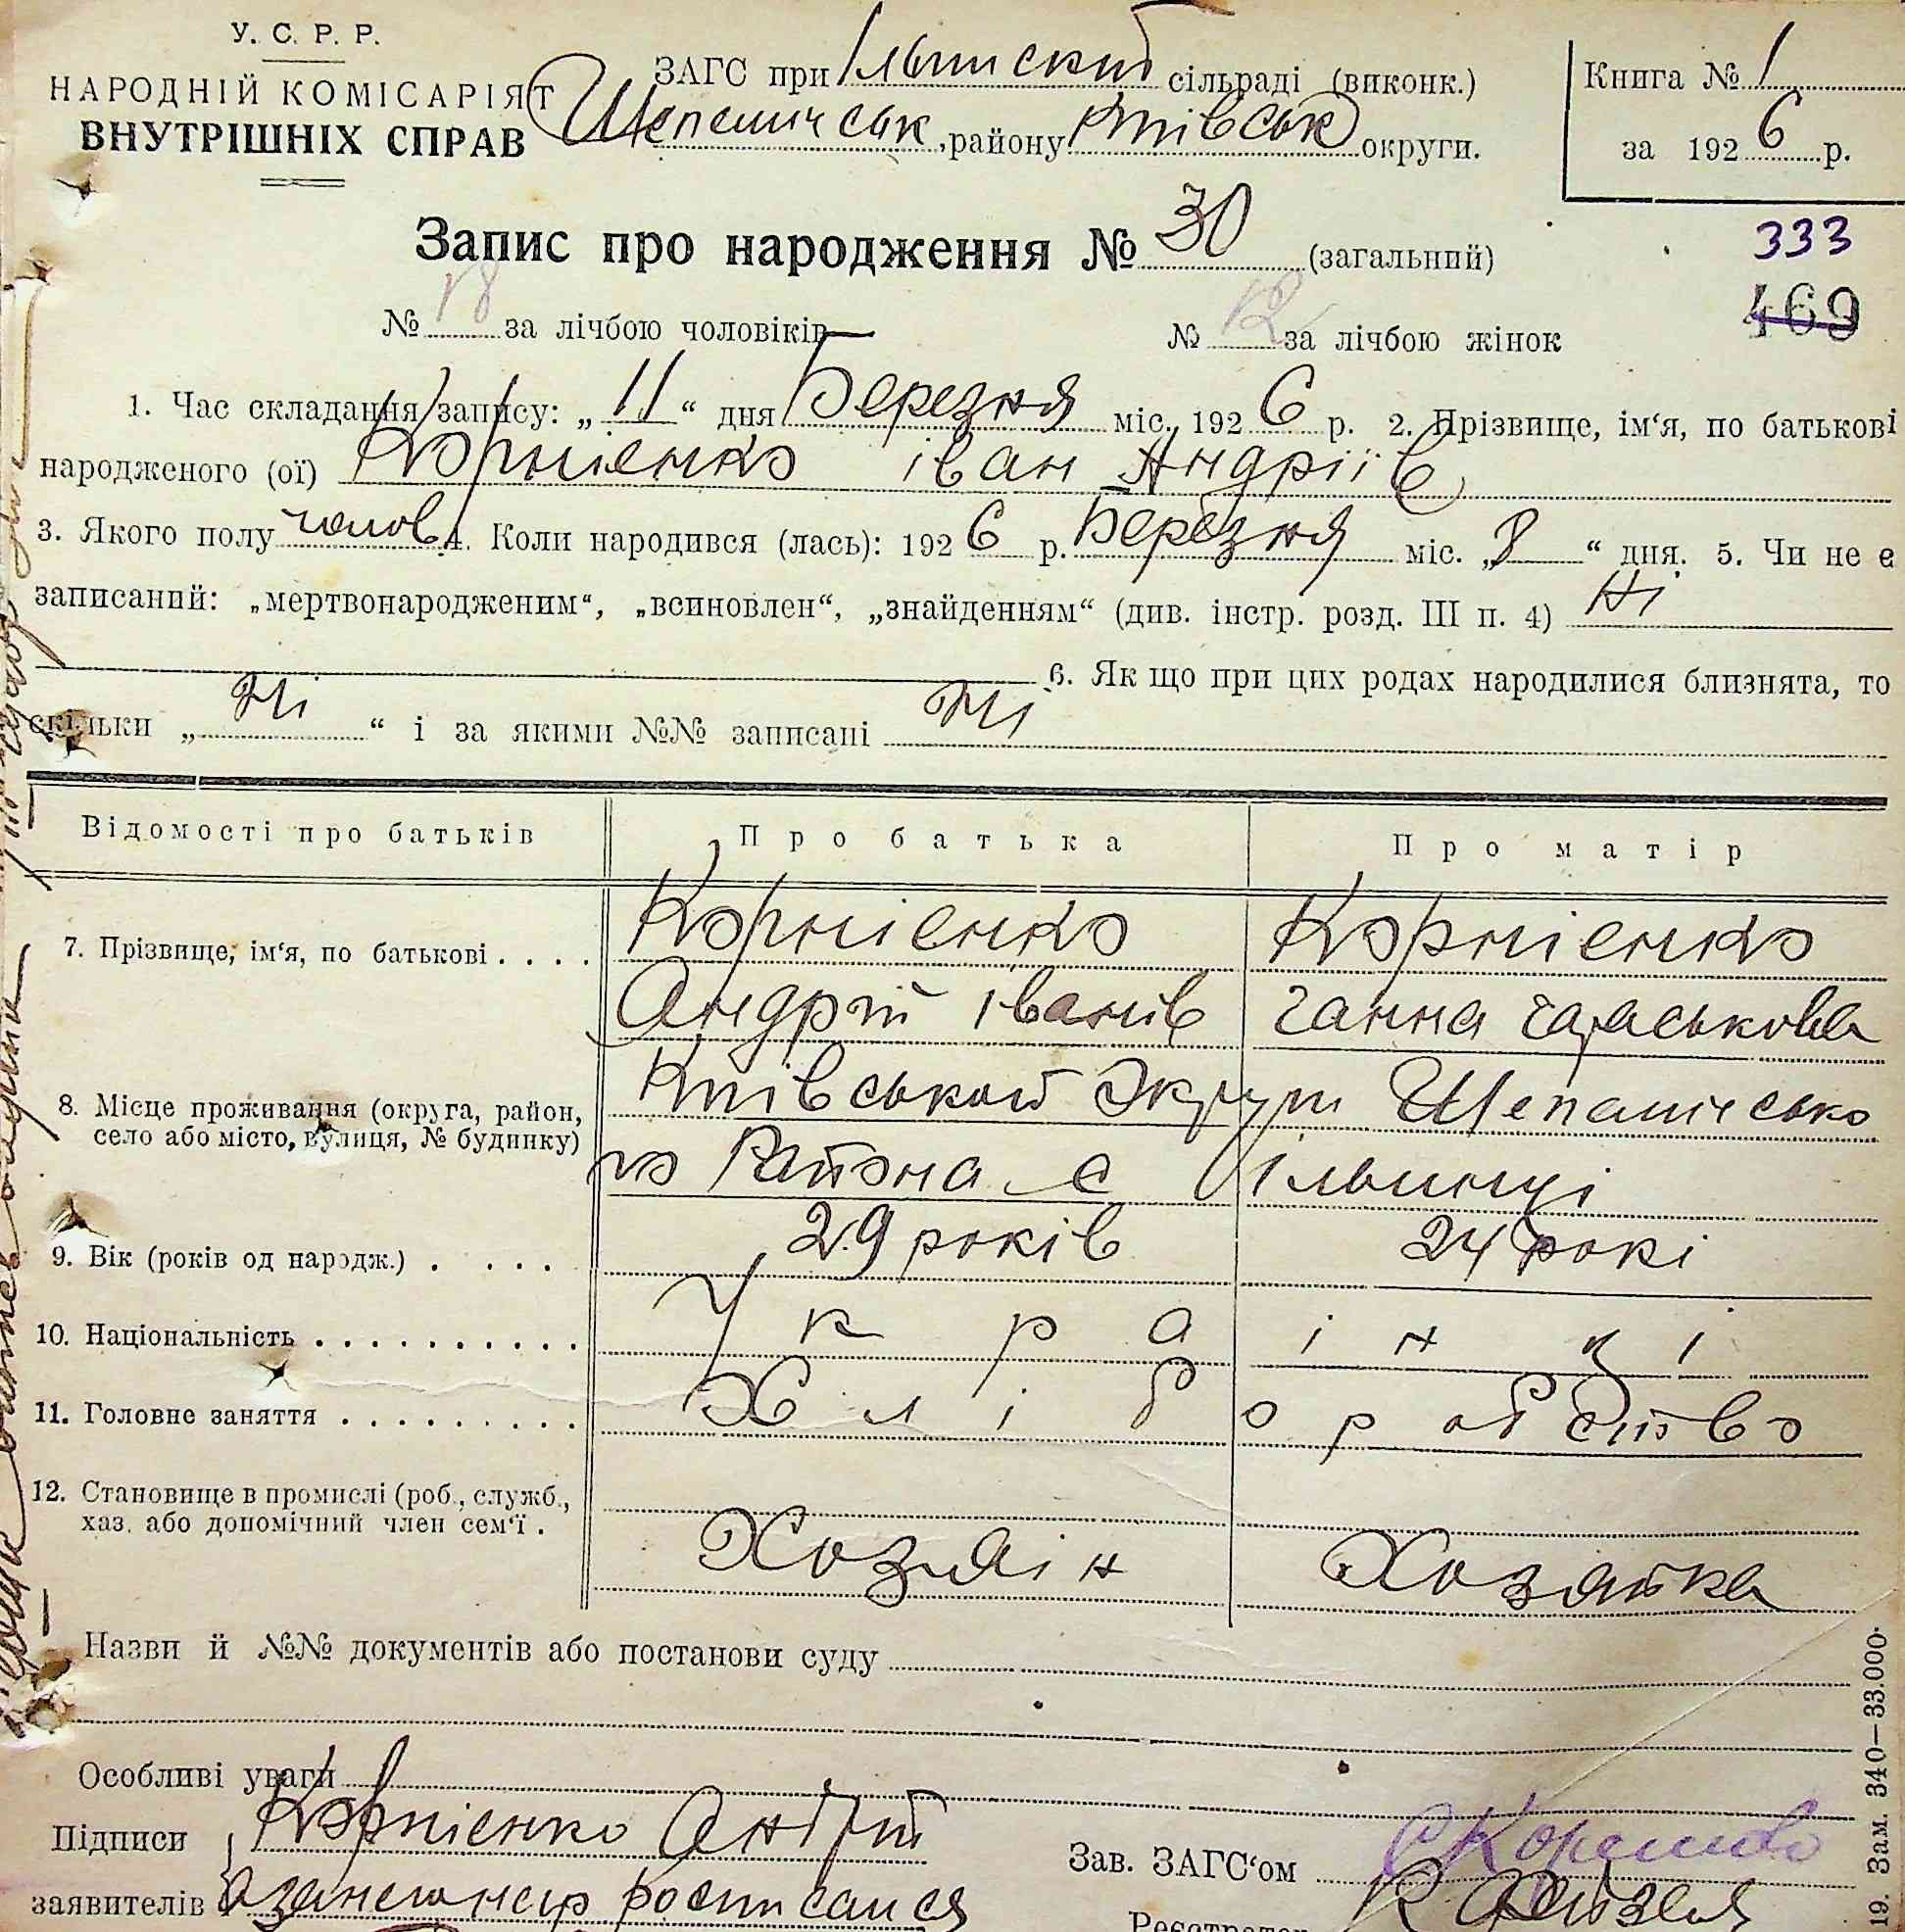 У. С. Р. Р.
НАРОДНІЙ КОМІСАРІЯТ
ВНУТРІШНІХ СПРАВ
ЗАГС при Ільинській сільраді (виконк.)
Шепеличськ району Київськ округи.
Книга № 1
за 1926 р.
Запис про народження № 30 (загальний)
333
469
№ 18 за лічбою чоловіків —
№ 12 за лічбою жінок
1. Час складання запису: „ 11 “ дня Березня міс. 1926 р. 2. Прізвище, ім‘я, по батькові
народженого (ої) Корнієнко іван Андріїв
3. Якого полу чолов 4. Коли народився (лась): 1926 р. Березня міс. „ 8 “ дня. 5. Чи не є
записаний: „мертвонародженим“, „всиновлен“, „знайденням“ (див. інстр. розд. III п. 4) Ні
6. Як що при цих родах народилися близнята, то
скільки „ Ні “ і за якими №№ записані Ні
Відомості про батьків Про батька Про матір
7. Прізвище, ім‘я, по батькові . . . . Корнієнко Корнієнко
Андрій іванів Ганна Гараськова
8. Місце проживання (округа, район,
село або місто, вулиця, № будинку)
Київськой Округи Шепалическо
го Района с Ільинці
9. Вік (років од народж.) . . . . . 29 років 24 рокі
10. Національність . . . . . . . . . . Українці
11. Головне заняття . . . . . . . . . . Хліборобство
12. Становище в промислі (роб., служб.,
хаз. або допомічний член сем‘ї .
Хозяін Хозяйка
Назви й №№ документів або постанови суду
Особливі уваги
Підписи Корнієнко Андрій
заявителів
Зав. ЗАГС‘ом
Реєстратор
19. Зам. 340—33.000.